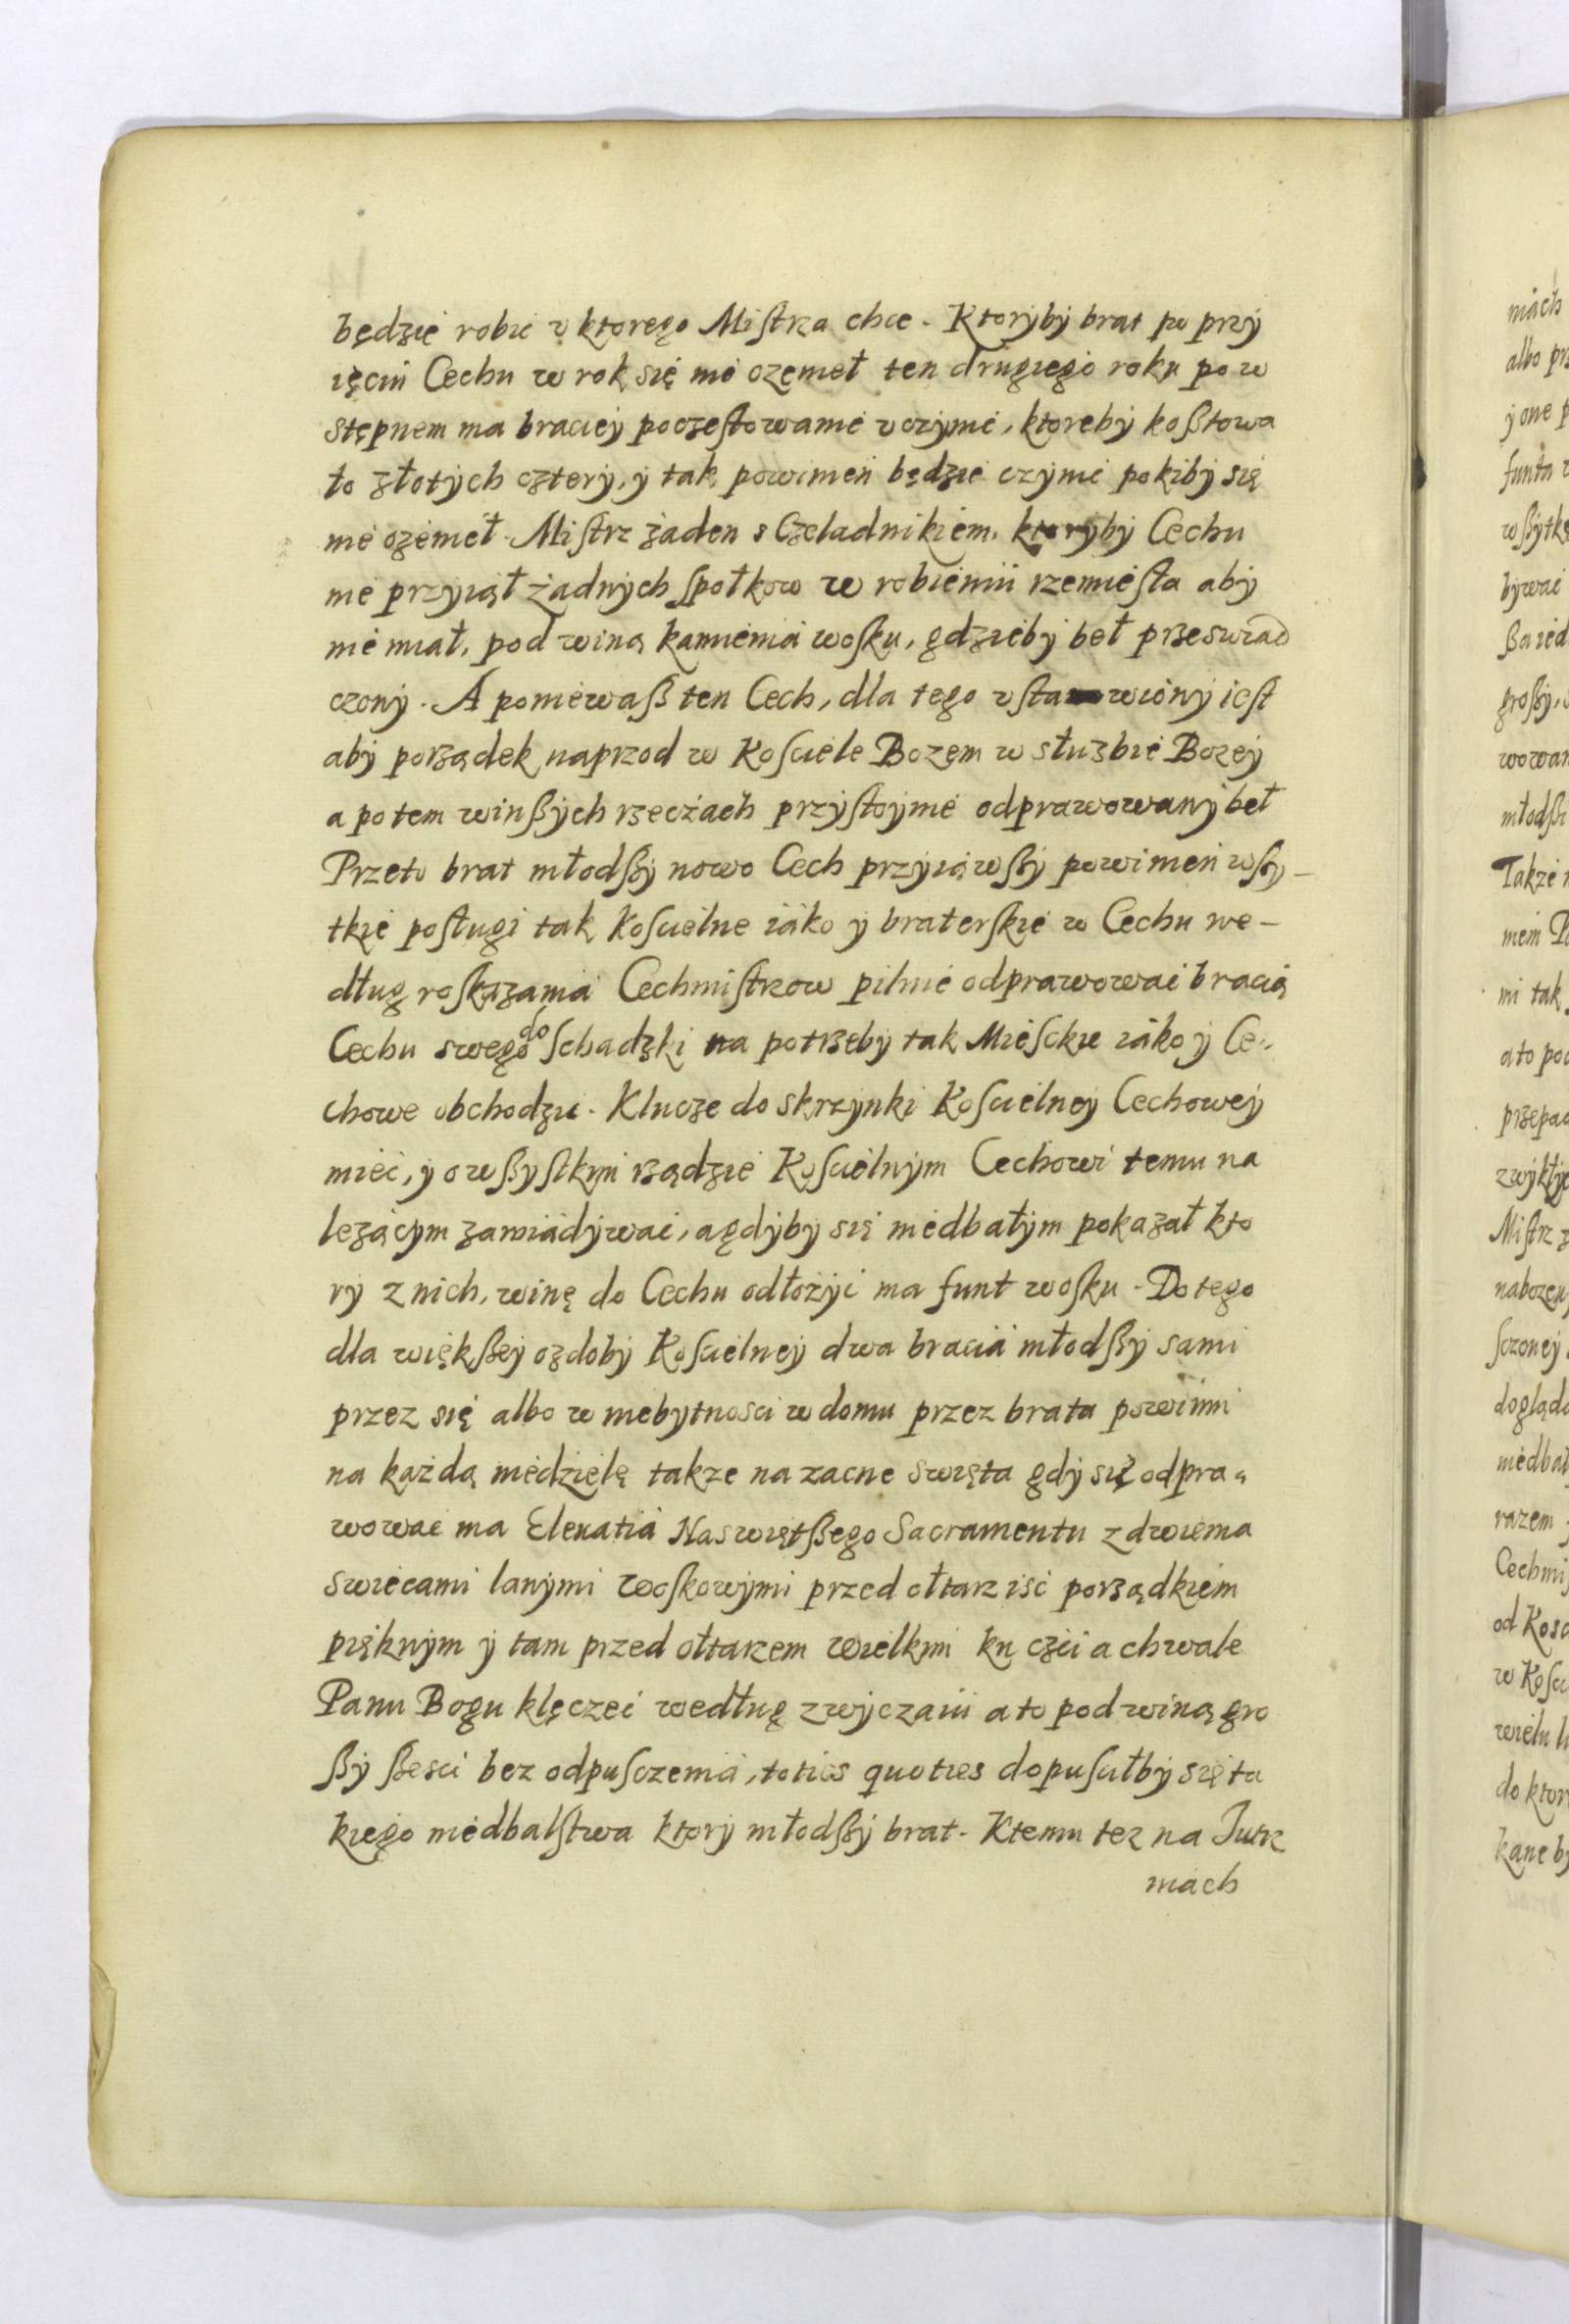 będzie robić v ktorego Mistrza chce. Ktoryby brat po przy
ięciu Cechu w rok się nie ozęnieł ten drugiego roku po w
stępnem ma braciey poczestowanie vczynić, ktoreby koßtowa
ło złotych cztery, y tak powinien będzie czynić pokiby się
nie ozenieł. Mistrz żaden s Czeladnikiem, ktoryby Cechu
nie przyiął żadnych społkow w robieniu rzemiesła aby
nie miał, pod winą kamienia wosku, gdzieby beł przeswiad
czony. A poniewaß ten Cech, dla tego vstawiony iest
aby porządek naprzod w Kosciele Bozęm w służbie Bozey
a potem w inßych rzeczach przystoynie odprawowany beł
Przeto brat młodßy nowo Cech przyiąwßy powinien wßy-
tkie posługi tak koscielne iako y braterskie w Cechu we-
dług roskazania Cechmistrzow pilnie odprawować bracią
Cechu swego do schadzki na potrzeby tak Miesckie iako y Ce-
chowe obchodzić. Klucze do skrzynki Koscielney Cechowey
mieć, y o wßystkim rządzie Koscielnym Cechowi temu na
lezącym zawiadywać, a gdyby się niedbałym pokazał kto
ry z nich, winę do Cechu odłożyć ma funt wosku. Do tego
dla więkßey ozdoby Koscielney dwa bracia młodßy sami
przez się albo w niebytnosci w domu przez brata powinni
na każdą niedzielę takze na zacne swięta gdy się odpra-
wować ma Eleuatia Naswiętßego Sacramentu z dwiema
swiecami lanymi woskowymi przed ołtarz iść porządkiem
pięknym y tam przed ołtarzem wielkim ku czci a chwale
Panu Bogu klęczeć według zwyczaiu a to pod winą gro
ßy ßesci bez odpusczenia, toties quoties dopusciłby się ta
kiego niedbalstwa ktory młodßy brat. Ktemu tez na Jutrz
niach
niach
albo prz
y one p
funta
wßytkę
bywać
großy,
wowan
młodßi
Takze n
mi tak
a to pod
przepad
zwykły
Mistrz
nabozen
sczoney
dogląda
niedbał
razem
Cechmis
od Kosc
w Kosci
wielu l
do ktor
kane by